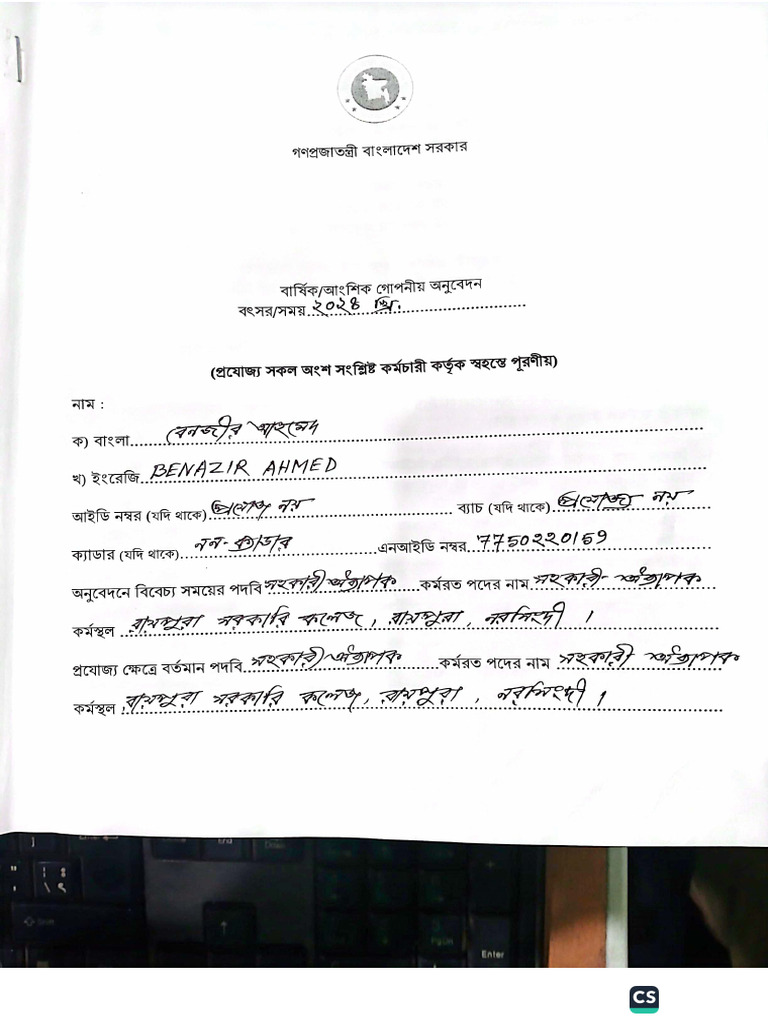 গণপ্রজাতন্ত্রী বাংলাদেশ সরকার
বার্ষিক/আংশিক গোপনীয় অনুবেদন
বৎসর/সময়.২০২৪ খ্রি.
(প্রযোজ্য সকল অংশ সংশ্লিষ্ট কর্মচারী কর্তৃক স্বহস্তে পূরণীয়)
নাম :
ক) বাংলা বেনজীর আহমেদ
খ) ইংরেজি BENAZIR AHMED
আইডি নম্বর (যদি থাকে) প্রযোজ্য নয় ব্যাচ (যদি থাকে) প্রযোজ্য নয়
ক্যাডার (যদি থাকে) নন-ক্যাডার এনআইডি নম্বর 7750220159
অনুবেদনে বিবেচ্য সময়ের পদবি সহকারী অধ্যাপক কর্মরত পদের নাম সহকারী অধ্যাপক
কর্মস্থল রায়পুরা সরকারি কলেজ, রায়পুরা, নরসিংদী।
প্রযোজ্য ক্ষেত্রে বর্তমান পদবি সহকারী অধ্যাপক কর্মরত পদের নাম সহকারী অধ্যাপক
কর্মস্থল রায়পুরা সরকারি কলেজ, রায়পুরা, নরসিংদী।
End
Shift
Enter
CS